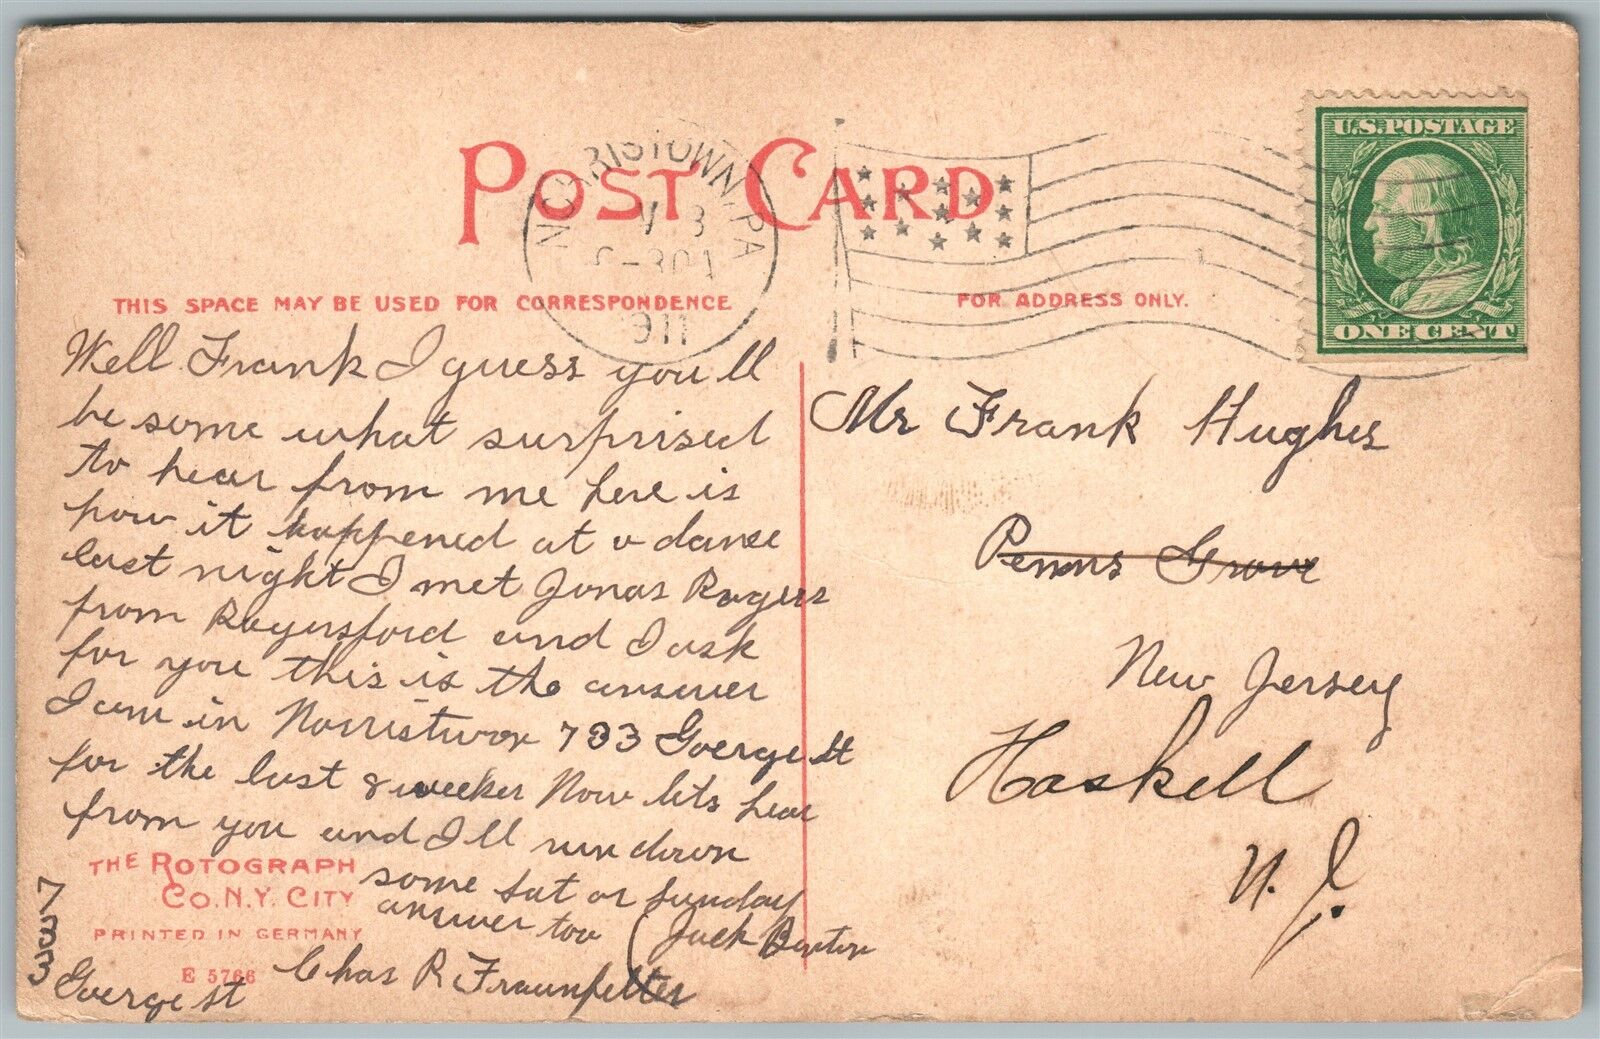 POST CARD
NORRISTOWN, PA
V 3
-30
1911
U.S. POSTAGE
ONE CENT
THIS SPACE MAY BE USED FOR CORRESPONDENCE
FOR ADDRESS ONLY.
Well Frank I guess you'll
be some what surprised
to hear from me here is
how it happened at a danse
last night I met Jonas Rogers
from Royersford and I ask
for you this is the answer
I am in 733 Goerge St
for the last 8 weekes Now lets hear
from you and I'll run down
some sat or sunday
answer too (Jack
Chas R Fraunfelter
733
Goerge st
Mr Frank Hughes
Penns Grove
New Jersey
Haskell
N. J.
THE ROTOGRAPH
CO. N.Y. CITY
PRINTED IN GERMANY
E 5766